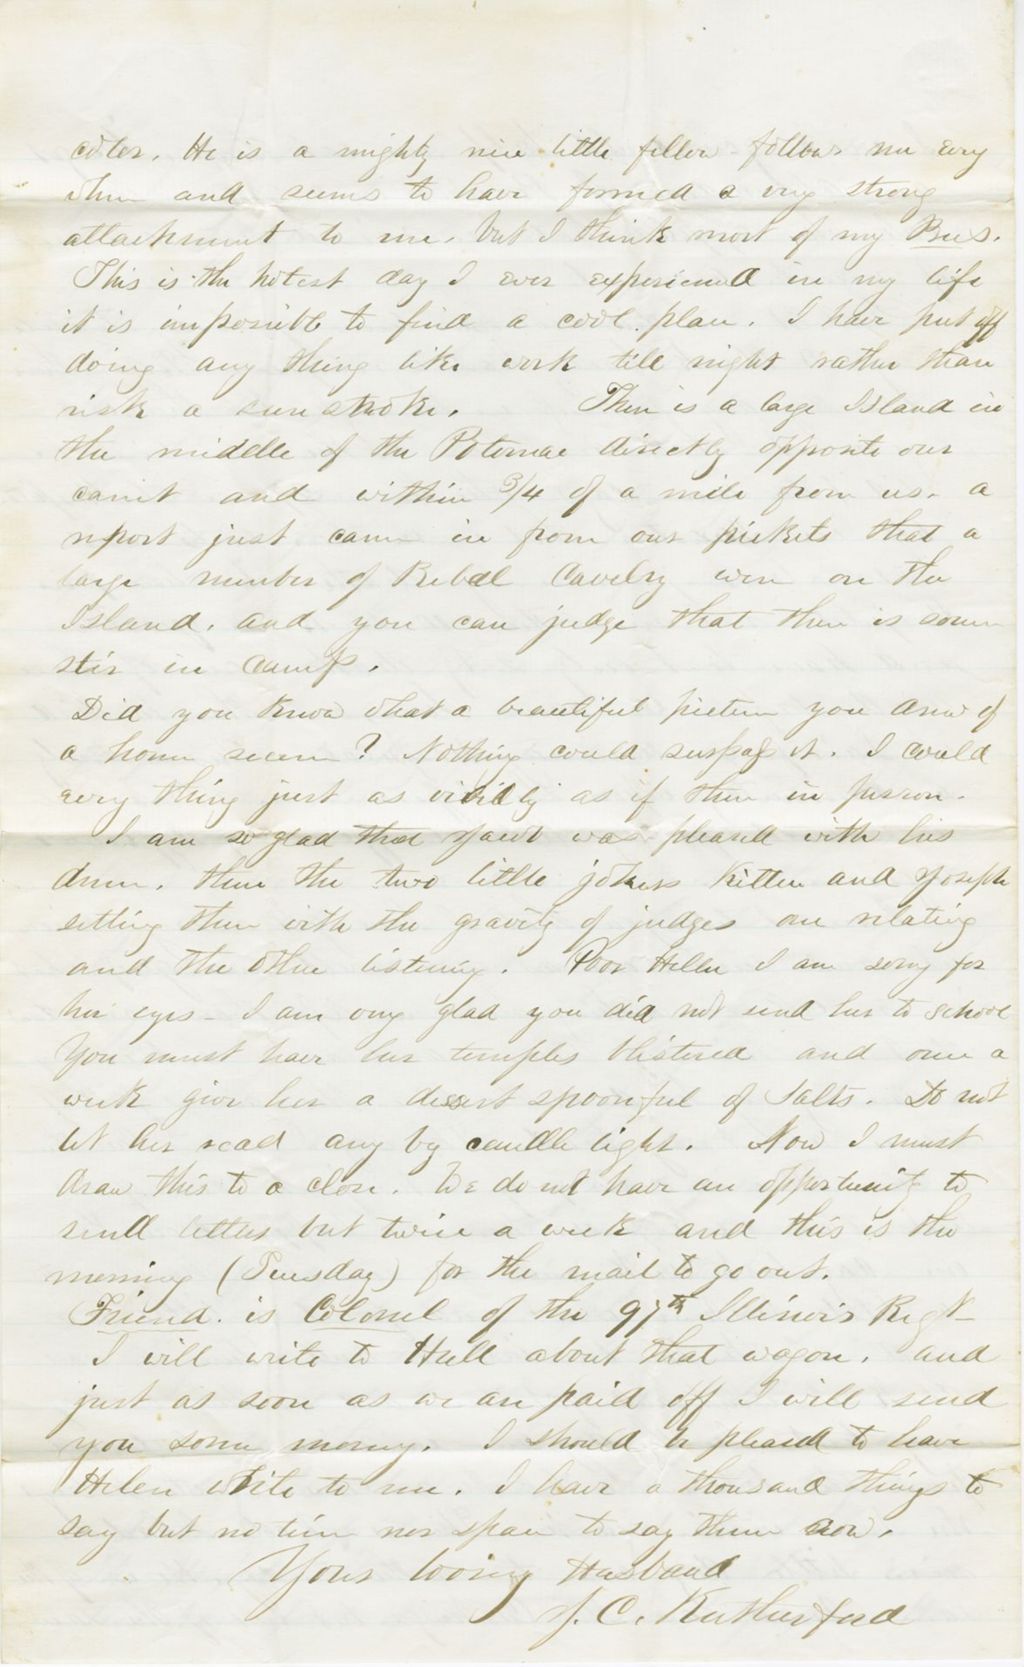 color. He is a mighty nice little fellow follows me every
where and seems to have formed a very strong
attachment to me. but I think most of my Bees.
This is the hotest day I ever experienced in my life
it is imposible to find a cool place. I have put off
doing any thing like work till night rather than
risk a sun stroke. There is a large Island in
the middle of the Potomac directly opposite our
camp and within 3/4 of a mile from us. a
report just came in from our pickets that a
large number of Rebel Cavelry were on the
Island. and you can judge that there is some
stir in camp.
Did you know what a beautiful picture you drew of
a home scene? Nothing could surpass it. I could
every thing just as vividly as if there in person.
I am so glad that was pleased with his
drum. then the two little jokers Kittee and Joseph
setting there with the gravity of judges one relating
and the other listening. Poor Helen I am sorry for
her eyes - I am very glad you did not send her to school
You must have her temples blistered and once a
week give her a desert spoonful of Salts. Do not
let her read any by candle light. Now I must
draw this to a close. We do not have an opportunity to
send letters but twice a week and this is the
morning (Tuesday) for the mail to go out.
Friend. is Colonel of the 97th Illinois Regt -
I will write to Hall about that wagon. and
just as soon as we are paid off I will send
you some money. I should be pleased to have
Helen write to me. I have a thousand things to
say but no time nor space to say them now.
Your loving Husband
J. C. Rutherford